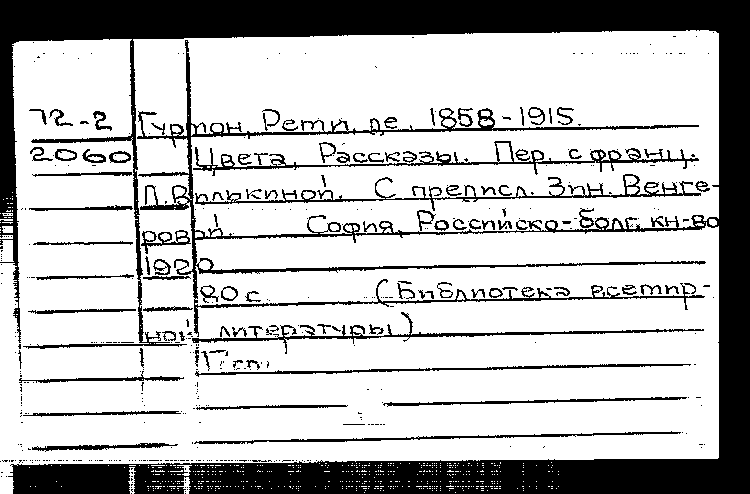 72-2 Гурмон, Реми, де. 1858-1915.
2060 Цвета, Рассказы. Пер. с франц.
Л. Вилькиной. С предисл. Зин. Венге-
ровой. София, Российско-болг. кн-во
1920
80 с. (Библиотека всемир-
ной литературы).
17 cm.